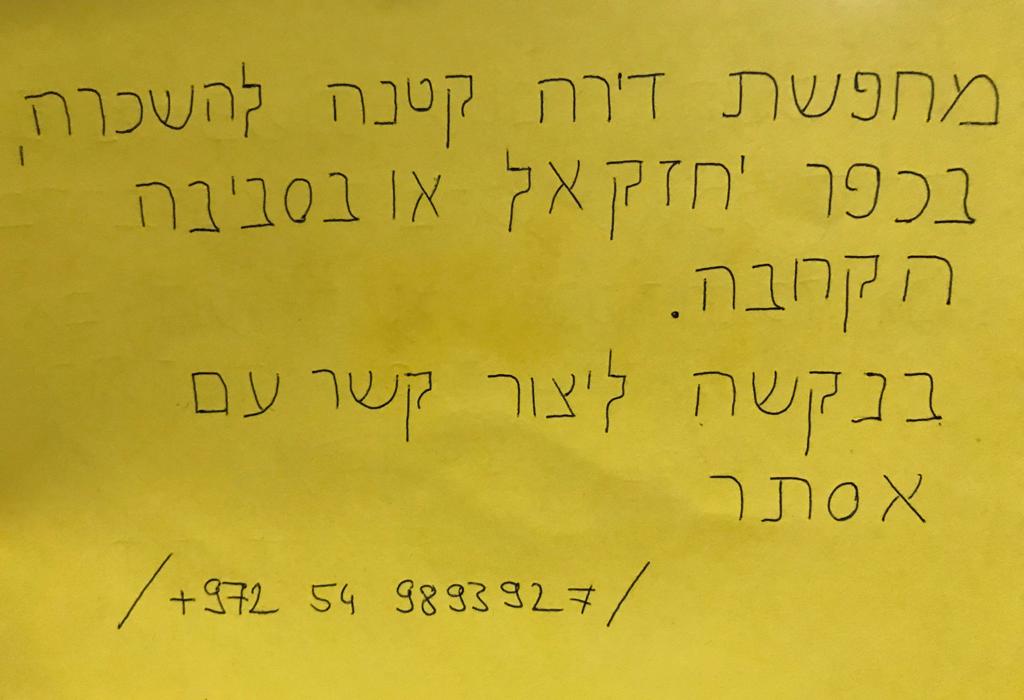 מחפשת דירה קטנה להשכרה,
בכפר יחזקאל או בסביבה
הקרובה.
בבקשה ליצור קשר עם
אסתר
/+972 54 9893927/